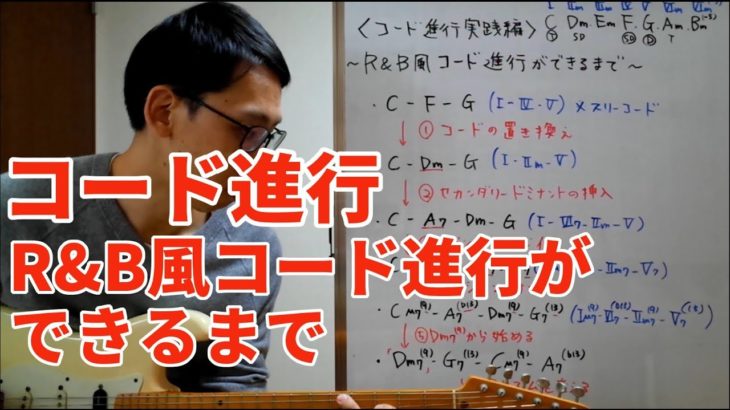 I IIm IIIm IV V VIm VIIm(-5)
〈コード進行実践編〉 C Dm Em F G Am Bm(-5)
T SD SD D T
~R&B風コード進行ができるまで~
・C-F-G (I-IV-V) メスリーコード
↓①コードの置き換え
C-Dm-G (I-IIm-V)
↓②セカンダリードミナントの挿入
C-A7-Dm-G (I-VI7-IIm-V)
-IIm7-V7)
CM7(9)-A7(b13)-Dm7(9)-G7(13) (IM7(9)-VI7(b13)-IIm7(9)-V7(13))
↓⑤Dm7(9)から始める
・Dm7(9)-G7(13)-CM7(9)-A7(b13)
コード進行
R&B風コード進行が
できるまで